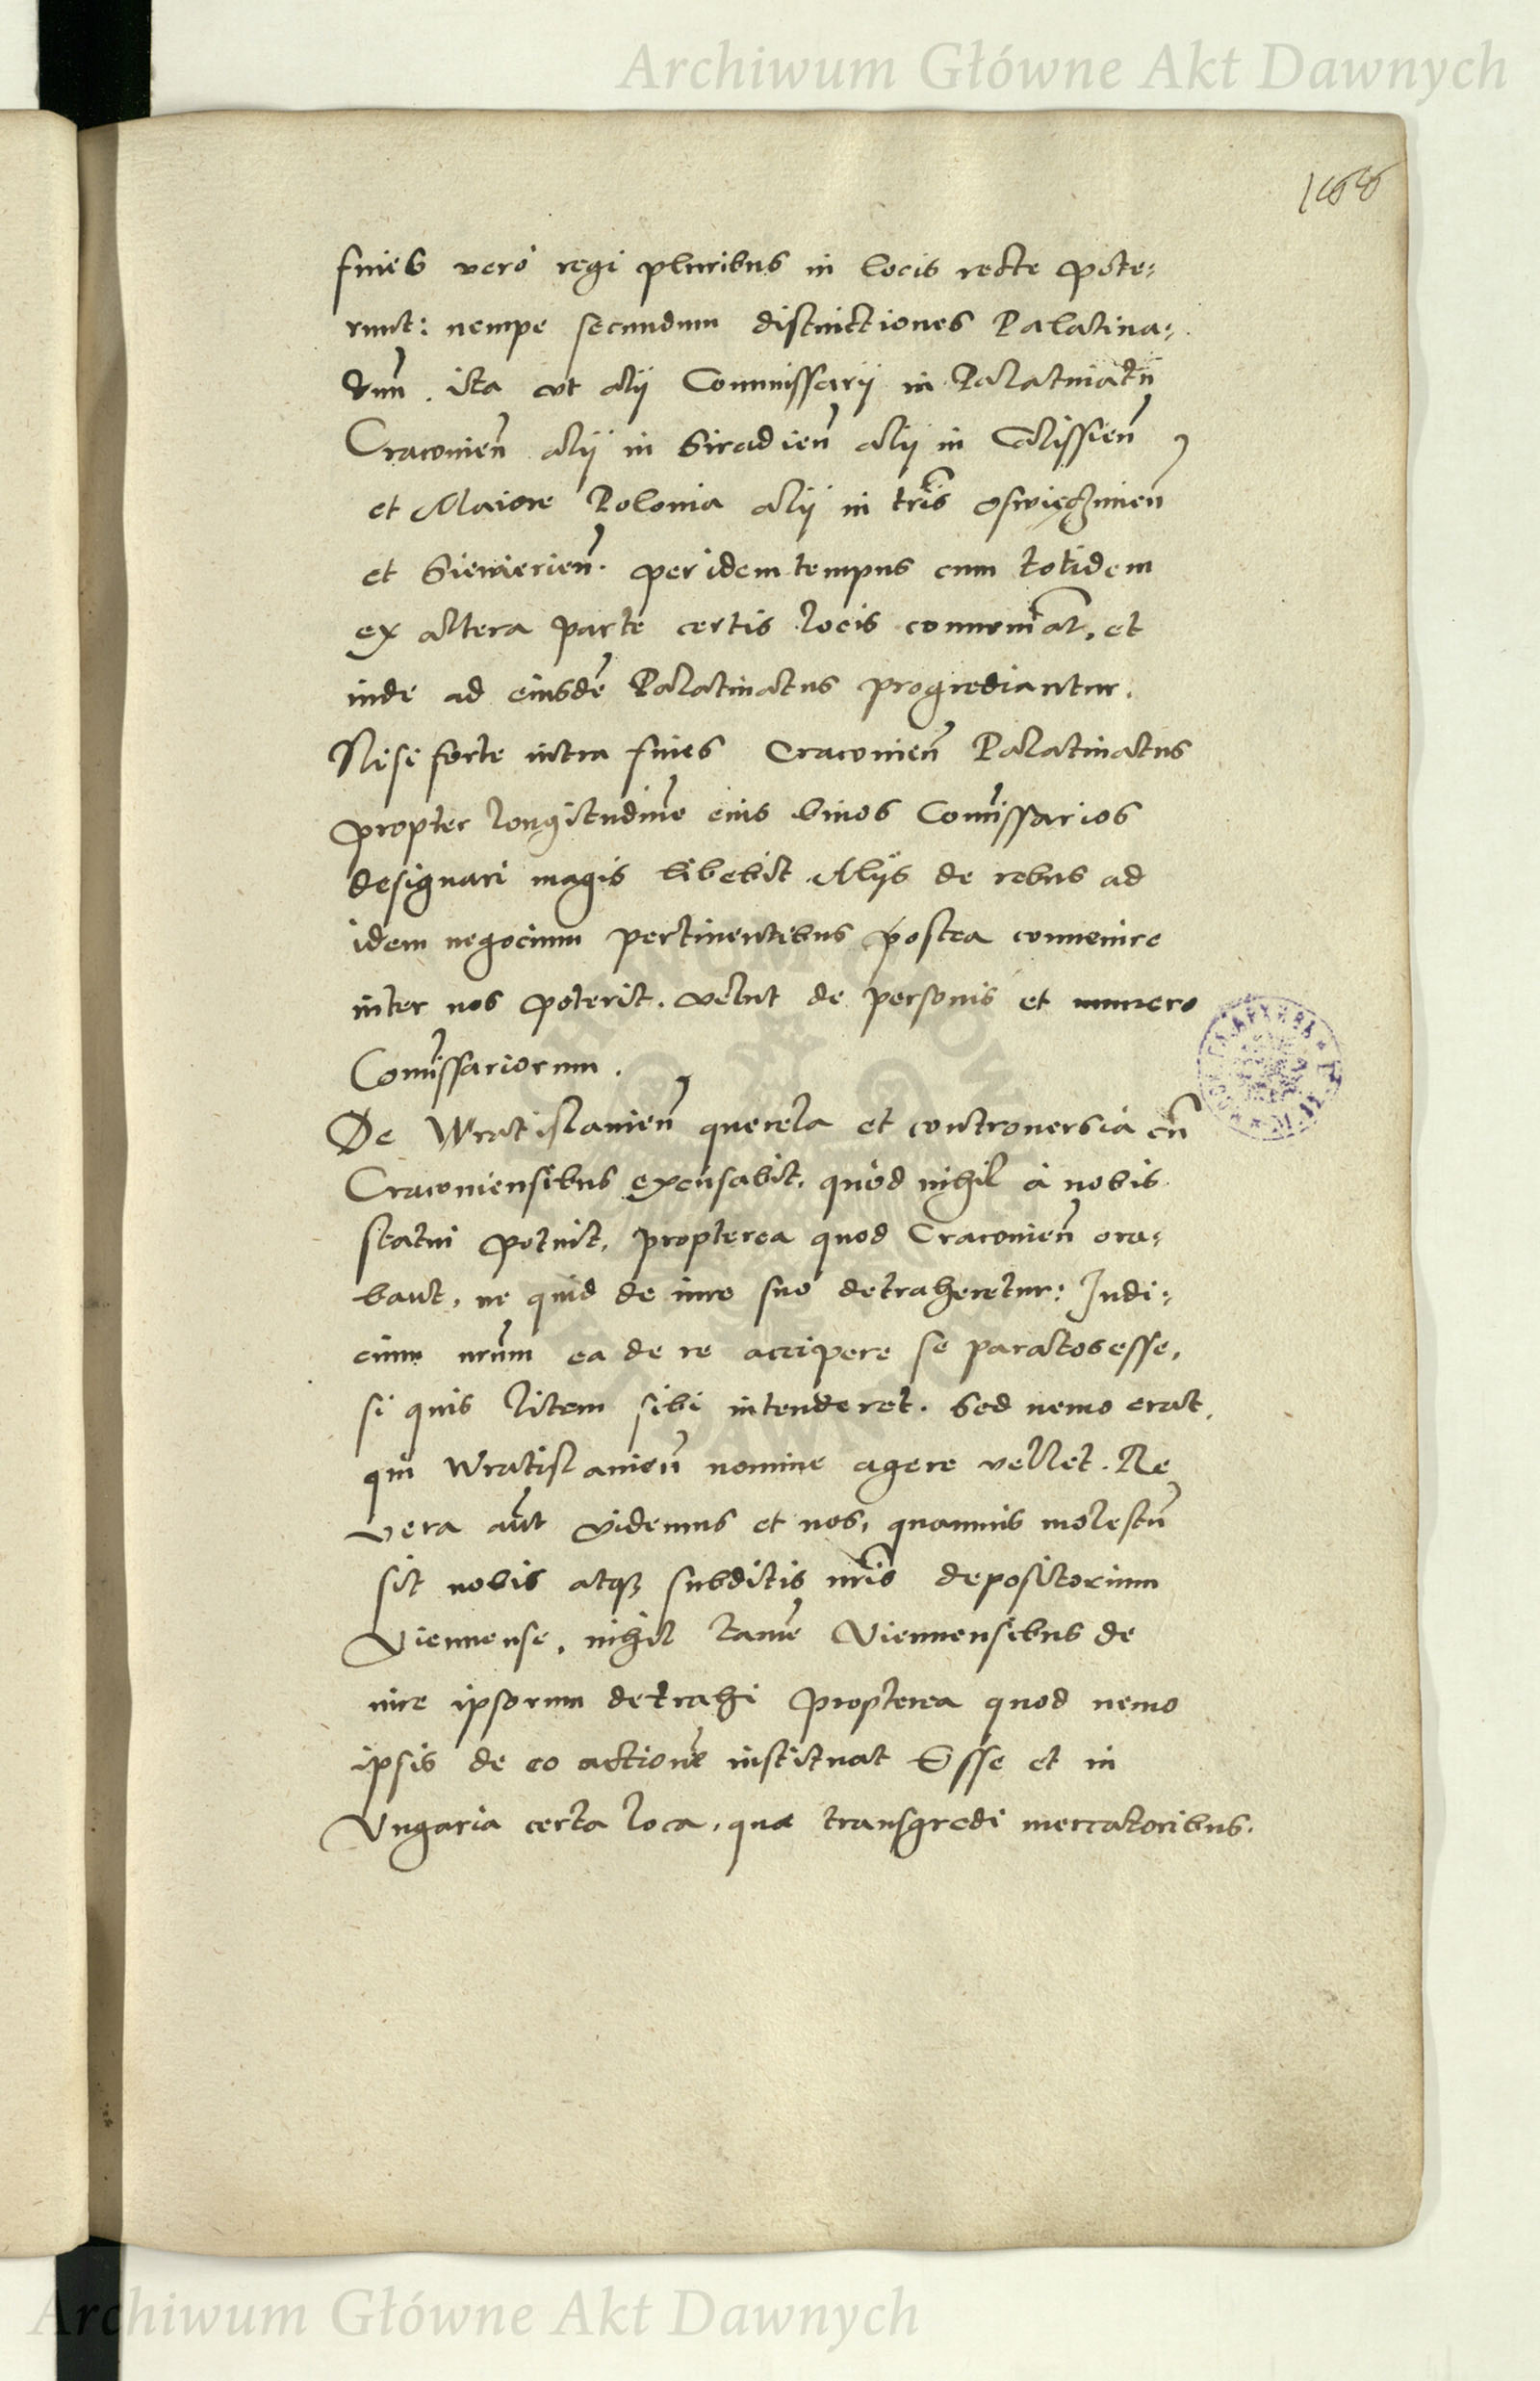 Archiwum Główne Akt Dawnych
166
fines verò regi pluribus in locis recte pote:
runt: nempe secundum distinctiones Palatina:
tuũ. ita vt alij Commissarij in Palatinatũ
Cracovieñ alij in Siradieñ alij in Calissieñ
et Maiore Polonia alij in tr̃is Oswięczimieñ
et Sievierieñ. per idem tempus cum totidem
ex altera parte certis locis conveniãt, et
inde ad eiusdẽ Palatinatus progrediantur.
Nisi forte intra fines Cracovieñ Palatinatus
propter longitudinẽ eius binos Com̃issarios
designari magis libebit Alijs de rebus ad
idem negocium pertinentibus postea convenire
inter nos poterit. velut de personis et numero
Com̃issariorum.
De Wratislavieñ querela et controversia cũ
Cracoviensibus excusabit, quòd nihil à nobis
statui potuit, propterea quod Cracovieñ ora:
bant, ne quid de iure suo detraheretur: Judi:
cium nr̃um ea de re accipere se paratos esse,
si quis litem sibi intenderet. Sed nemo erat,
qui Wratislavieñ nomine agere vellet. Re
vera aũt videmus et nos, quamvis molestũ
sit nobis atq3 subditis nr̃is depositorium
Viennense, nihil tamẽ Viennensibus de
iure ipsorum detrahi propterea quod nemo
ipsis de eo actionẽ instituat Esse et in
Vngaria certa loca, quæ transgredi mercatoribus.
Archiwum Główne Akt Dawnych